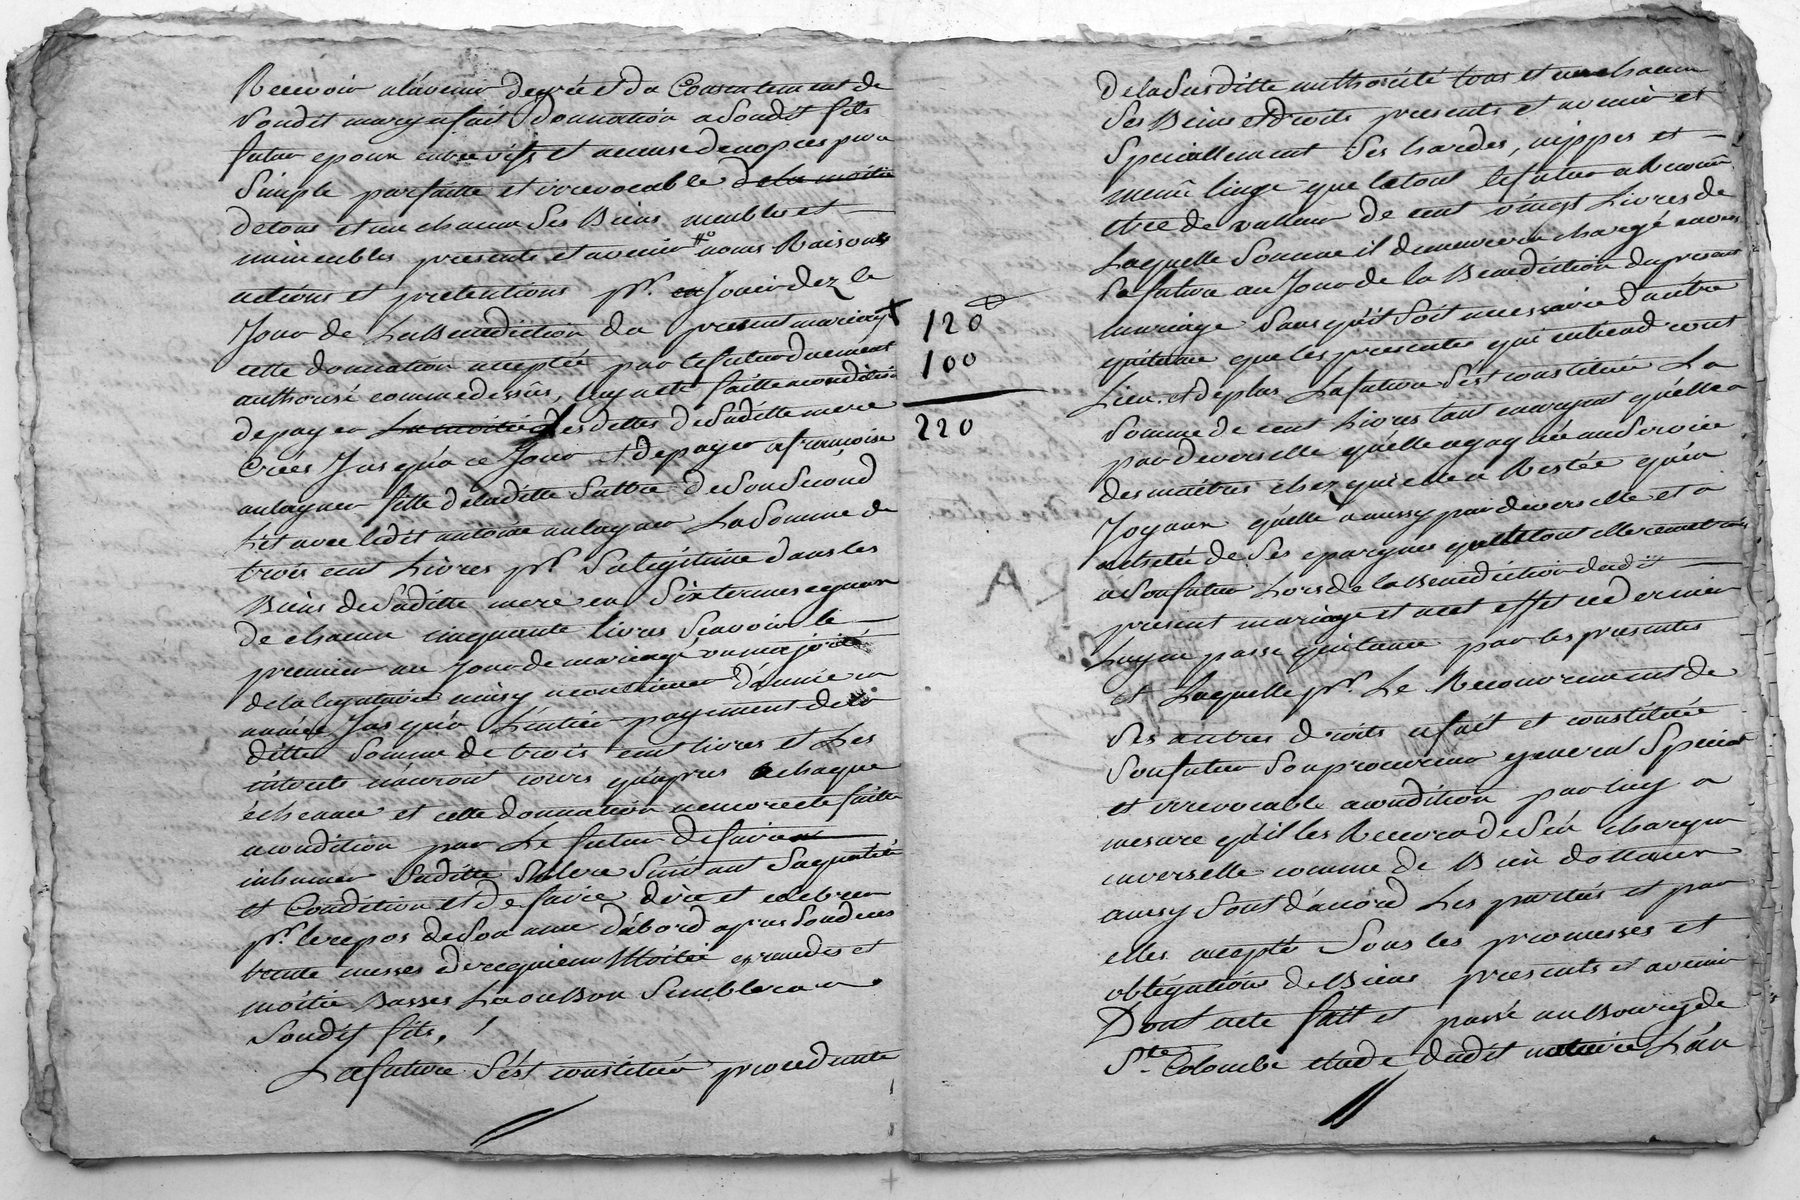 Recevoir a lávenir de gré et du Consentement de
Sondit mary a fait Donnation a Sondit fils
futur epoux entre vifs et acause de nopces pure
Simple parfaitte et irrevocable de la moitié
de tous et un chacun Ses Biens meubles et
immeubles presents et avenir noms Raisons
actions et pretentions pr. en Jouir dez le
Jour de La Benediction du present mariage
cette donnation acceptée par le futur duement
authorisé comme dessûs, luy a eté faitte a condition
de payer La moitié des dettes de Saditte mere
Créés Jusqu'a ce Jour et de payer a françoise
aulagner fille de laditte Sabere de Son Second
Lit avec ledit antoine aulagner La Somme de
trois cent Livres pr. Sa légitime dans les
Biens de Saditte mere en Six termes egaux
de chacun cinquante livres Scavoir le
premier au Jour de mariage ou majorité
de la legitaire ainsy a continuer d'année en
année Jusqu'a L'entier payement de la
ditte Somme de trois cent livres et Les
interets n'auront cours qu'apres chaque
écheance et cette donnation a encore eté faitte
a condition par Le futur de faire
inhumer Saditte mere Suivant Sa qualité
et Condition et de faire dire et celebrer
pr. le repos de Son ame d'abord apres Son deces
trente messes de requiem Moitié grandes et
moitié Basses La ou Bon Semblera a
Sondit fils,
La future S'ést constituée procedante
De la Susditte authorité tous et un chacun
Ses Biens et droits presents et avenir et
Speciallement Ses hardes, nippes et
menû linge que le tout le futur a Reconnû
etre de valleur de cent vingt Livres de
Laquelle Somme il demeurera chargé envers
La future au Jour de la Benediction du present
mariage Sans qu'il Soit necessaire d'autre
quitance que les presentes qui en tiendront
Lieu. et de plus La future S'ést constituée La
Somme de cent Livres tant en argent qu'elle a
par devers elle qu'elle a gagnée au Service
des maitres chez qui elle a Restée qu'en
Joyaux qu'elle a aussy par devers elle et a
acheté de Ses epargnes qu'elle tout elle remettra
a Son futur Lors de la Benediction dudit
present mariage et a cet effet ce dernier
Luy en passe quitance par les presentes
et Laquelle pr. Le Recouvrement de
Ses autres droits a fait et constitué
Son futur Son procureur general Special
et irrevocable a condition par luy a
mesure qu'il les Recevra de S'en charger
envers elle comme de Bien dottaux
ainsy Sont d'accord Les parties et par
elles accepté Sous les promesses et
obligations de Biens presents et avenir
Dont acte fait et passé au Bourg de
Ste. Colombe etude dudit notaire L'an
120
100
220